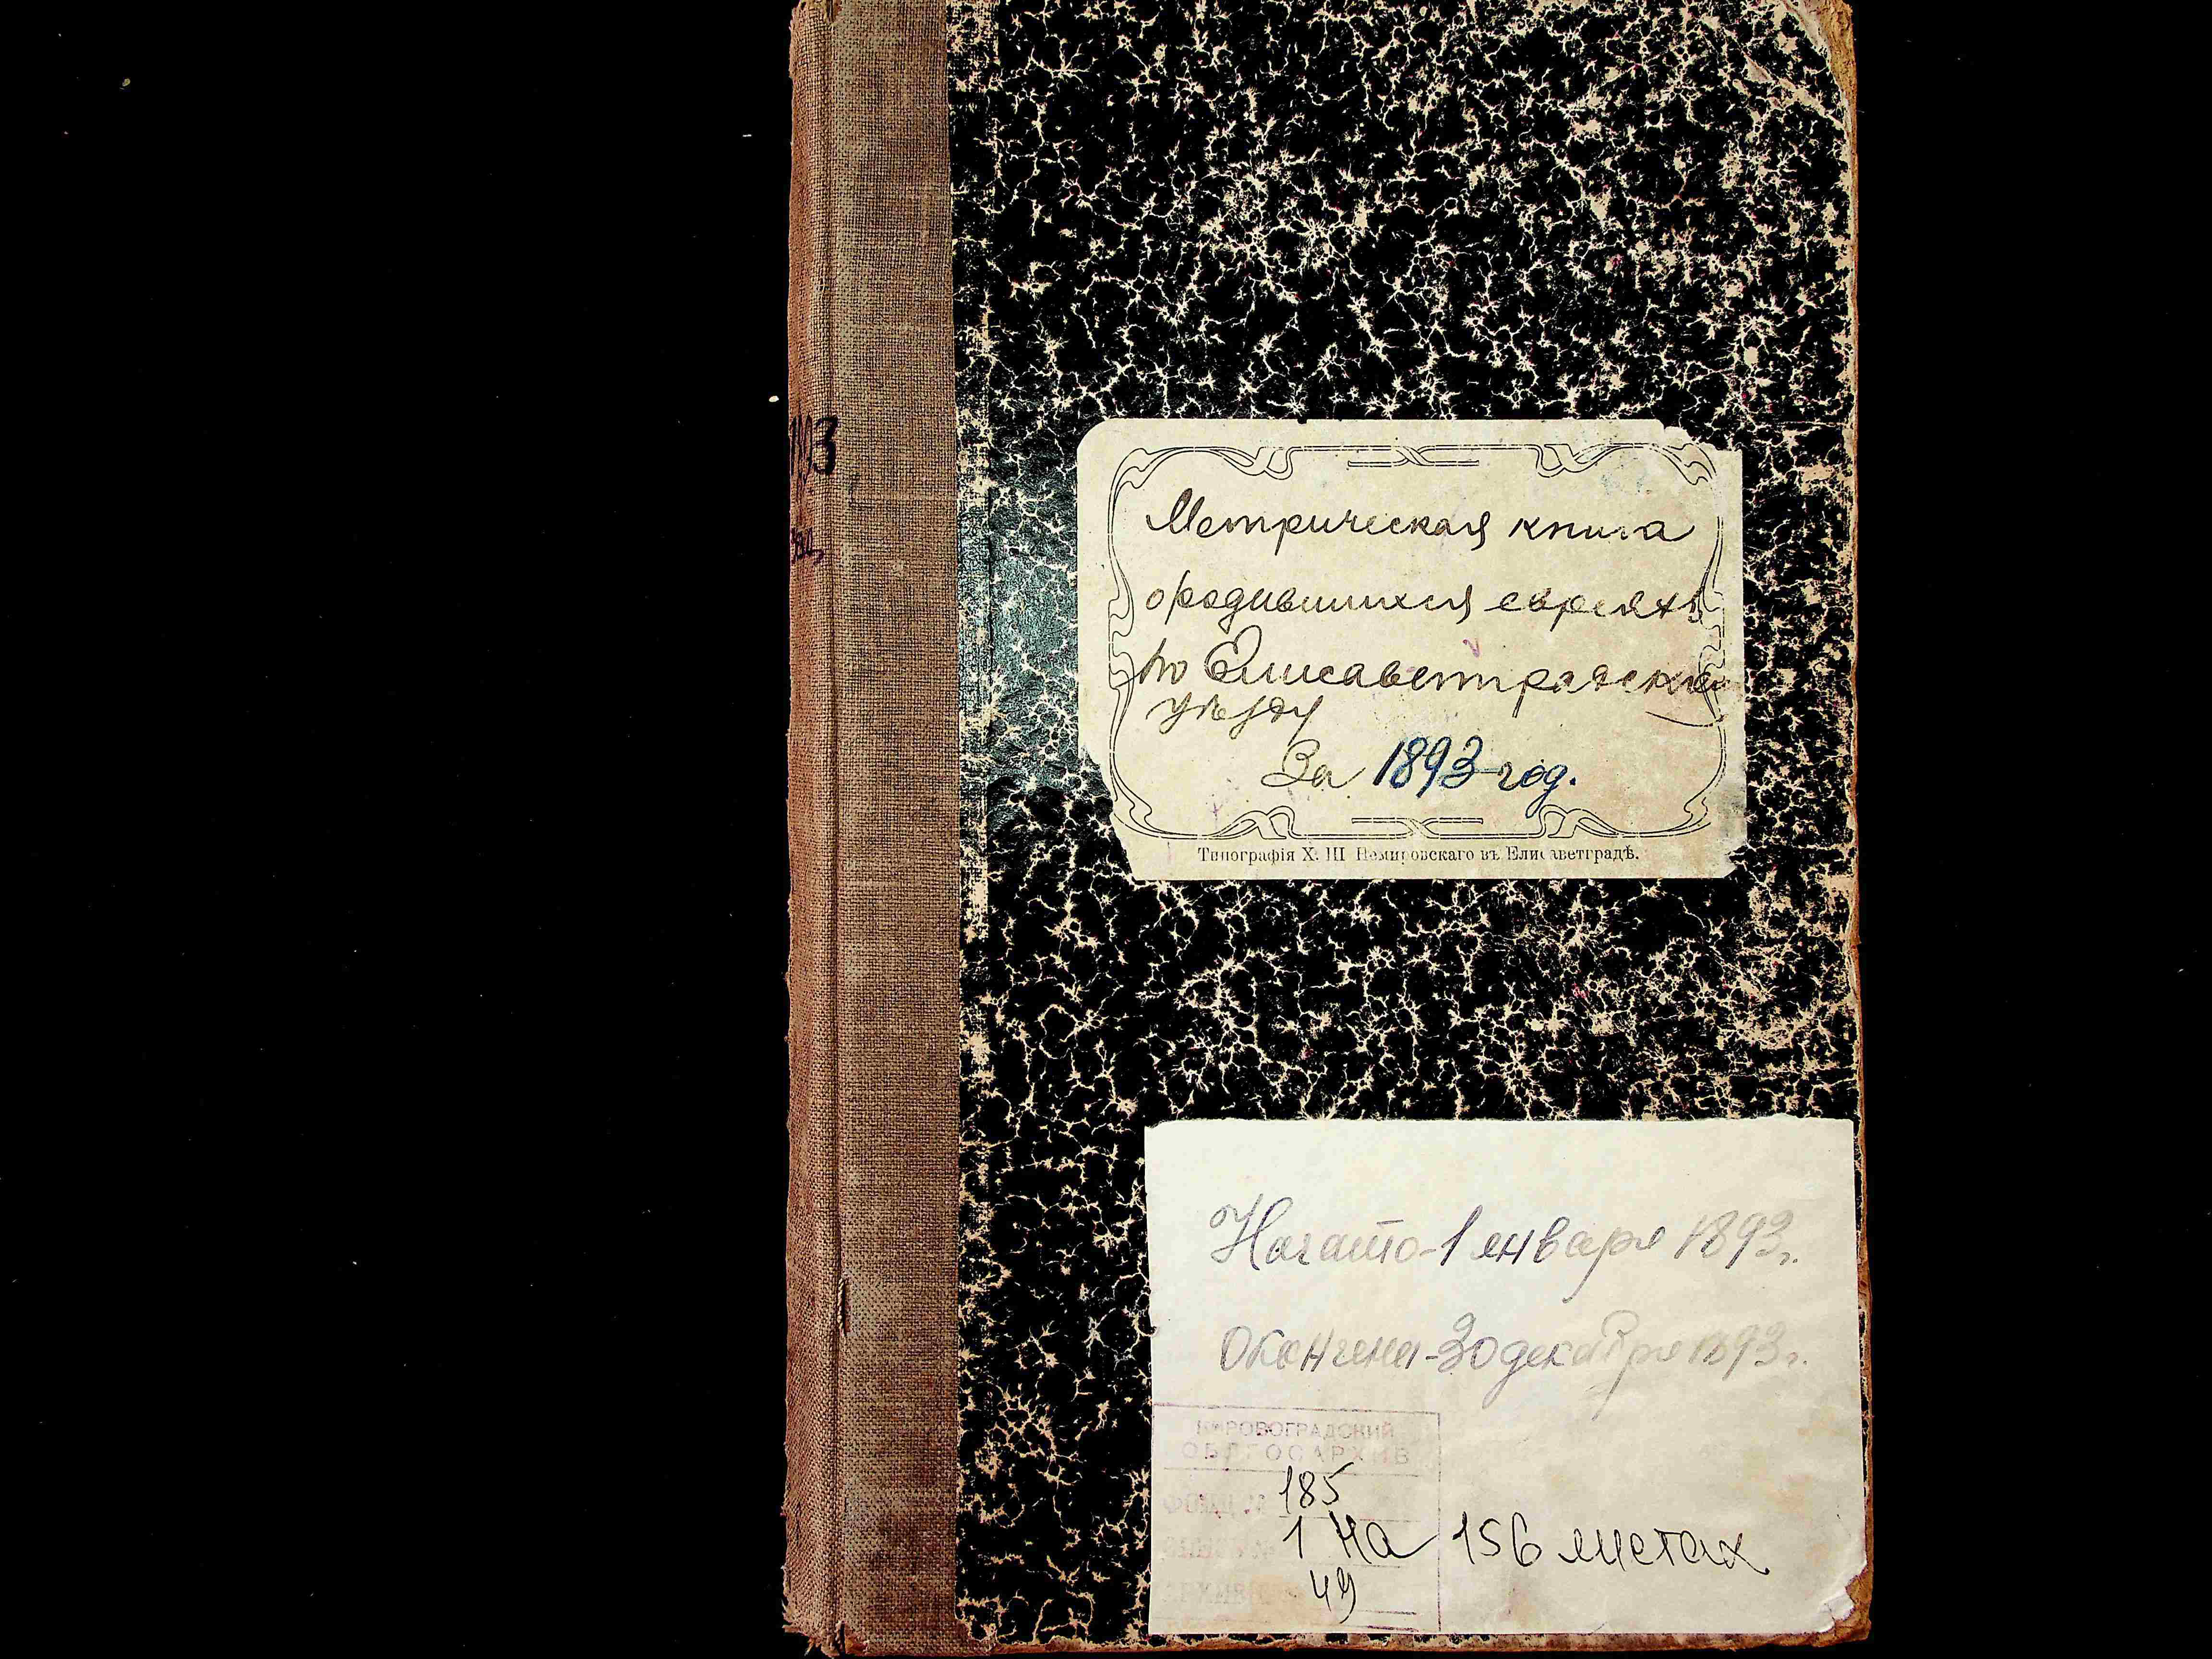 1893
Метрическая книга
о родившихся евреяхъ
по Елисаветградском
уѣзду
За 1893 год.
Типографія Х. Ш Немировскаго въ Елисаветградѣ.
Начато - 1 января 1893 г.
Окончена - 30 декабря 1893 г.
КИРОВОГРАДСКИЙ
ОБЛГОСАРХИВ
ФОНД № 185
1 на 156 листах
49